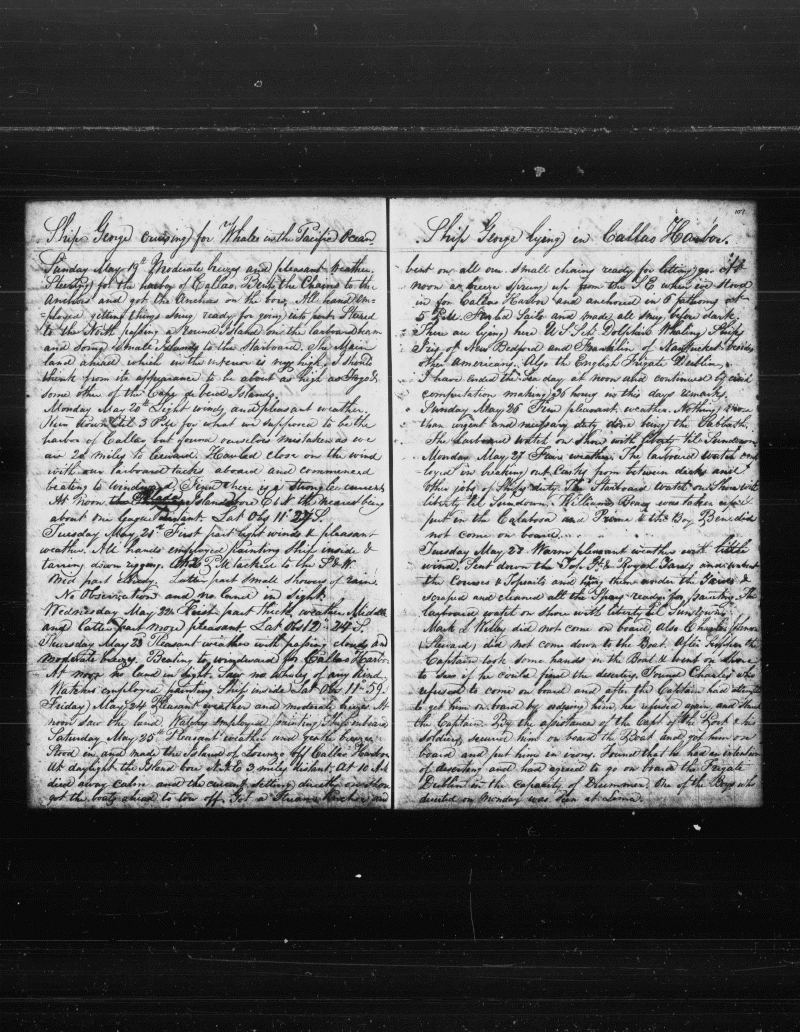 Ship George cruising for Whales in the Pacific Ocean
Sunday May 19th Moderate breezes and pleasant weather
Steering for the harbor of Callao. Bent the Chains to the
Anchors and got the Anchors on the bow. All hands em-
-ployed getting things snug ready for going into port. Steered
to the North passing a Round Island on the larboard beam
and some small Islands to the Starboard. The Main
land ahead which in the interior is very high, I should
think from its appearance to be about as high as Fogo &
some other of the Cape de verd Islands.
Monday May 20th Light winds and pleasant weather.
Run down till 3 P.M. for what we supposed to be the
harbor of Callao but found ourselves mistaken as we
are 20 miles to leeward. Hauled close on the wind
with our larboard tacks aboard and commenced
beating to windward. Find there is a strong lee current
At noon the Island bore E b N the nearest being
about one league distant. Lat Obs 11° 27 S.
Tuesday May 21st First part light winds & pleasant
weather. All hands employed painting Ship inside &
tarring down rigging. At 2 P.M. tacked to the S & W.
Mid part steady. Latter part small showers of rain.
No Observation and no land in sight.
Wednesday May 22 First part thick weather Middle
and latter part more pleasant. Lat Obs 12° 24 S.
Thursday May 23 Pleasant weather with passing clouds and
moderate breezes. Beating to windward for Callao Harbor.
At noon no land in sight. Saw no whales of any kind.
Watches employed painting Ship inside Lat Obs 11° 59.
Friday May 24 Pleasant weather and moderate breezes. At
noon saw the land. Watches employed painting Ship inside
Saturday May 25th Pleasant weather and gentle breezes.
Stood in and made the Island of Lorenzo off Callao Harbor
At daylight the Island bore N.N.E 3 miles distant. At 10 A.M
died away calm and the current setting directly on shore
got the boats ahead to tow off. Got a Stream Anchor and
107
Ship George lying in Callao Harbor.
bent on all our small chains ready for letting go. At
noon a breeze sprung up from the S.E. when we stood
in for Callao Harbor and anchored in 6 fathoms at
5 P.M. Furled Sails and made all snug before dark.
There are lying here U.S. Sch Dolphin Whaling Ships
Iris of New Bedford and Franklin of Nantucket besides
other americans. Also the English Frigate Dublin.
I have ended the Sea day at noon and continued by civil
computation making 36 hours in this days remarks.
Sunday May 26 Fine pleasant weather. Nothing more
than urgent and necessary duty done being the Sabbath.
The Larboard watch on shore with liberty til Sundown
Monday May 27 Fine weather. The larboard watch emp-
loyed in breaking out Casks from between decks and
other jobs of Ships duty. The Starboard watch on Shore with
liberty til Sundown. William Bray was taken up &
put in the Calaboza and Prime & the Boy Ben did
not come on board.
Tuesday May 28 Warm pleasant weather with little
wind. Sent down the Top Gt & Royal Yards and unbent
the Courses & Topsails and
scraped and cleaned all the Spars ready for painting. The
larboard watch on shore with liberty til Sundown.
Mark L Wiley did not come on board. Also Charles
(Steward) did not come down to the Boat. After Supper the
Captain took some hands in the Boat & went on shore
to see if he could find the deserters. Found Charles who
refused to come on board and after the Captain had attempted
to get him on board by advising him, he refused again, and struck
the Captain. By the assistance of the Capt of the Port & his
soldiers, secured him on board the Boat and got him on
board and put him in irons. Found that he had an intention
of deserting and had agreed to go on board the Frigate
Dublin in the capacity of Drummer. One of the Boys who
deserted on Monday was seen at Lima.